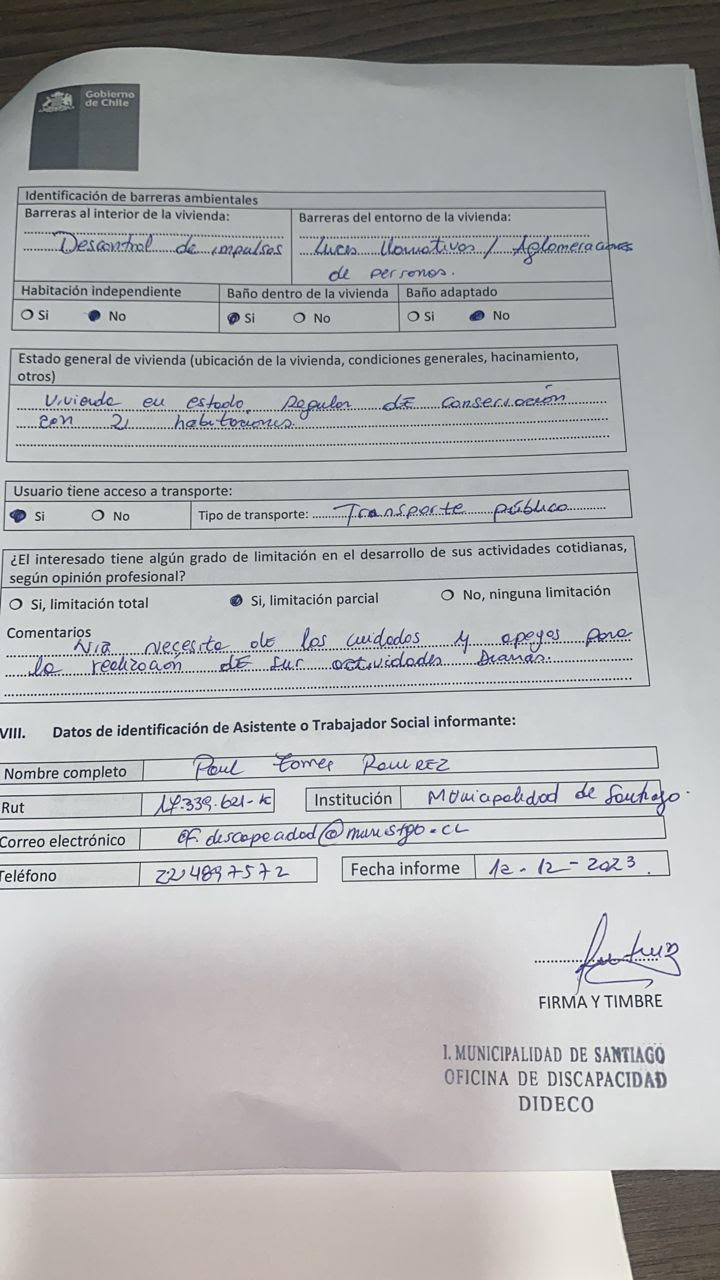 Gobierno
de Chile
Identificación de barreras ambientales
Barreras al interior de la vivienda:
Barreras del entorno de la vivienda:
Descontrol de impulsos
Luces llamativas / Aglomeraciones
de personas.
Habitación independiente
Baño dentro de la vivienda
Baño adaptado
Si No
Si No
Si No
Estado general de vivienda (ubicación de la vivienda, condiciones generales, hacinamiento,
otros)
Vivienda en estado Regular de conservación
con 2 habitaciones.
Usuario tiene acceso a transporte:
Si No
Tipo de transporte: Transporte público
¿El interesado tiene algún grado de limitación en el desarrollo de sus actividades cotidianas,
según opinión profesional?
Si, limitación total
Si, limitación parcial
No, ninguna limitación
Comentarios
necesita de los cuidados y apoyos para
la realización de sus actividades Diarias.
VIII. Datos de identificación de Asistente o Trabajador Social informante:
Nombre completo Ramirez
Rut 17.339.621-K
Institución Municipalidad de Santiago.
Correo electrónico
Teléfono 224897572
Fecha informe 12-12-2023.
FIRMA Y TIMBRE
I. MUNICIPALIDAD DE SANTIAGO
OFICINA DE DISCAPACIDAD
DIDECO